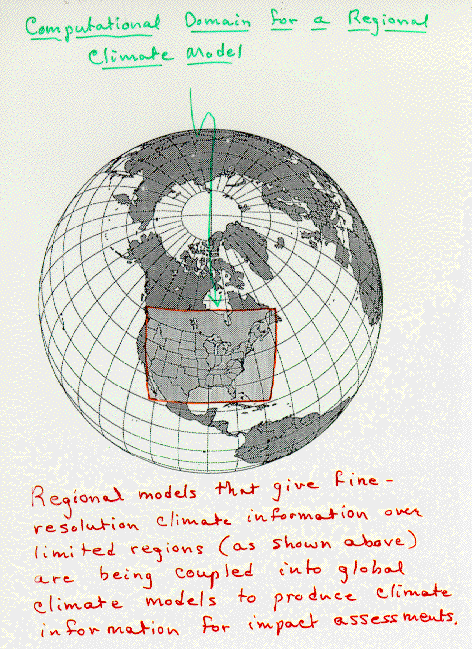 Computational Domain for a Regional
Climate Model
Regional models that give fine-
resolution climate information over
limited regions (as shown above)
are being coupled into global
climate models to produce climate
information for impact assessments.